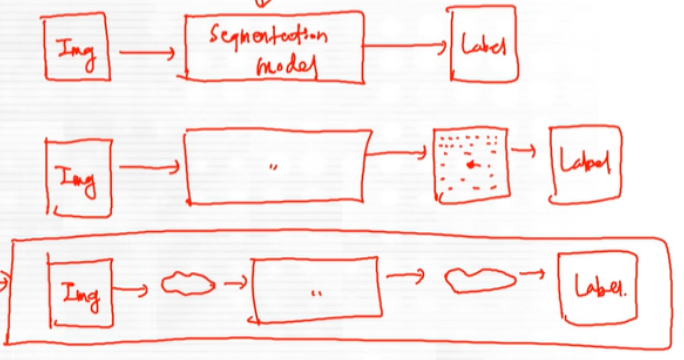 Img
Segmentation
model
Label
Img
"
Label
Img
"
Label.